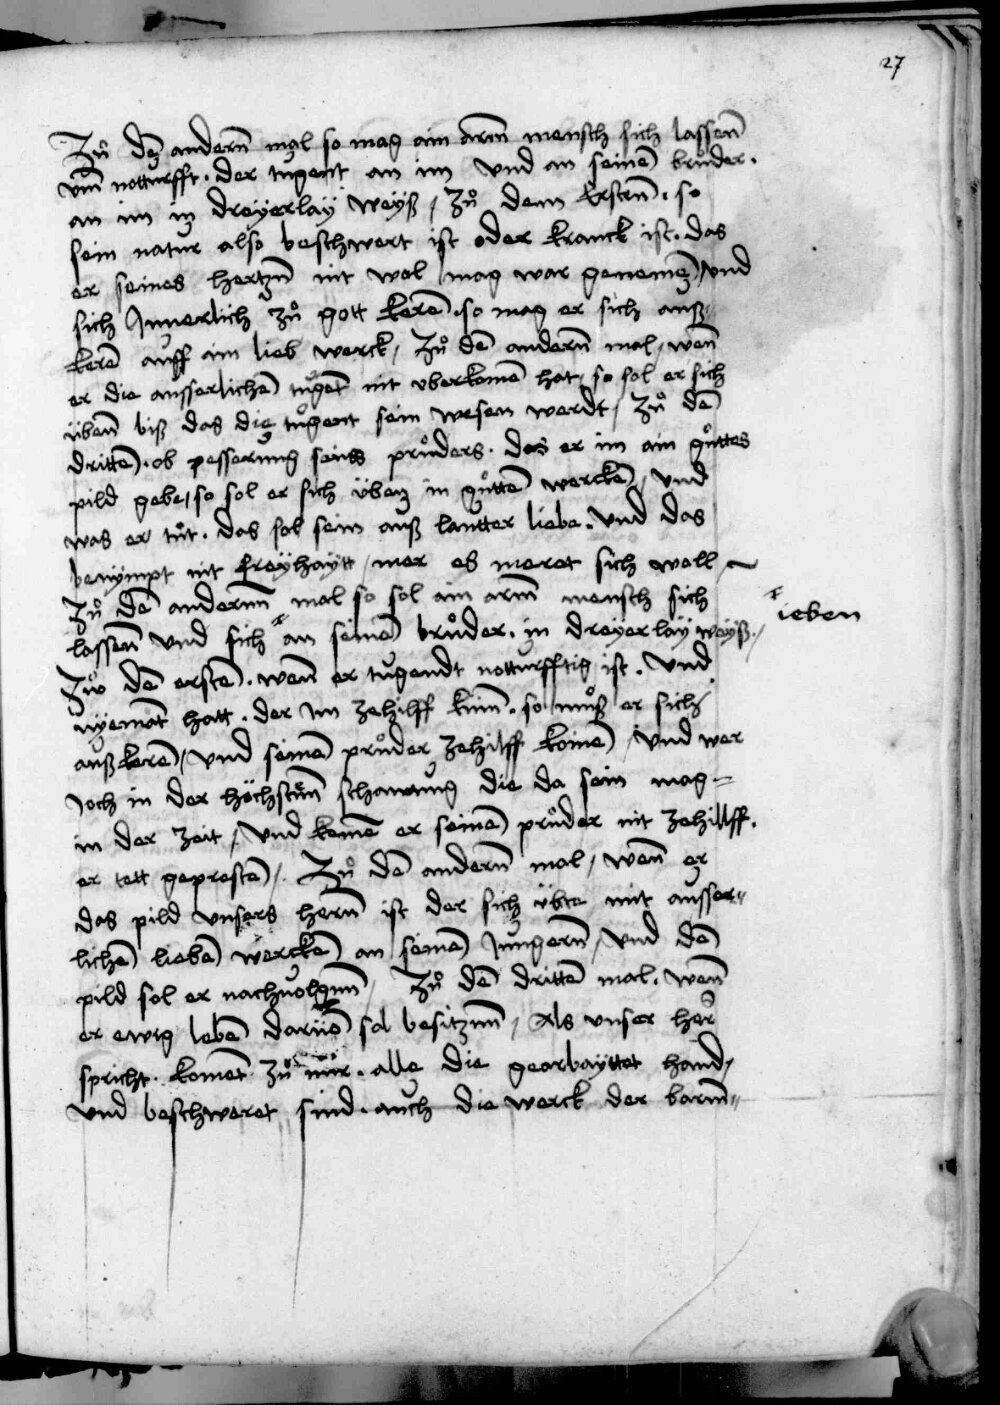 27
Zuͦ dem andernn mal so mag ain arm mensch sich lassenn
vm̄ notturfft · der tugent an im vnd an seinē bruͦder ·
an im in dreyerlay weyß / Zuͦ denn Erstnn · so
sein natur also beschwert ist oder kranck ist · das
er seines hertznn nit wol mag war genemen / vnd
sich Innerlich zuͦ gott kerē · so mag er sich auß
kerē auff ain lieb werck / Zuͦ dē andernn mal / wen̄
er die ausserlichē tugēt nit vberkomē hat / so sol er sich
übenn biß das die tuͦgent sein wesen werdt / Zuͦ dē
drittē · ob pesserung seins pruͦders · das er im ain guͦttes
pild gebe / so sol er sich üben in guͦttē werckē / vnd
was er tuͦt · das sol sein auß lautter liebe · vnd das
benympt nit freyhaytt / mer es meret sich woll /
Zuͦ dē andernn mal so sol ain arm mensch sich
lassenn vnd sich an seinē bruͦder · in dreyerlay weyß · /
ieben
Zuͦo dē erstē · wen̄ er tugendt notturfftig ist · vnd
nyemāt hatt · der im zehilff kum̄ · so muͦß er sich
auß kerē / vnd seinē pruͦder zehilff komē / vnd wer
Joch in der höchstenn schawung die da sein mag
in der zeit / vnd kemē er seinē pruͦder nit zehillff ·
er tett geprestē / . Zuͦ dē andernn mal / wen̄ er
das pild vnsers hernn ist der sich übte mit ausser=
lichē liebē werckē an seinē Jungernn / vnd dē
pild sol er nachuolgnn / Zuͦ dē drittē mal · wen̄
er ewig lebē sol besitznn / Als vnser her
spricht · komēt zuͦ mir · alle die gearbayttet hand /
vnd beschweret sind · auch die werck der barm=